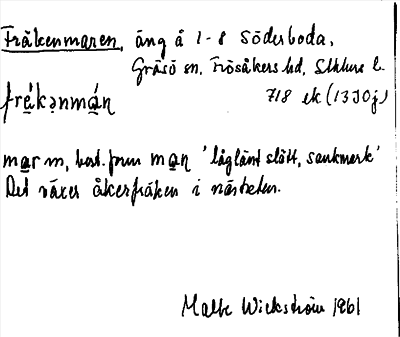 Fräkenmaren, äng å 1-8 Söderboda,
Gräsö sn, Frösåkers hd, Sthlms l.
718 ek (13J0j)
frä̱́kənmá̱n
ma̱r m, best. form ma̱n 'låglänt slått, sankmark'
Det växer åkerfräken i närheten.
Malte Wickström 1961